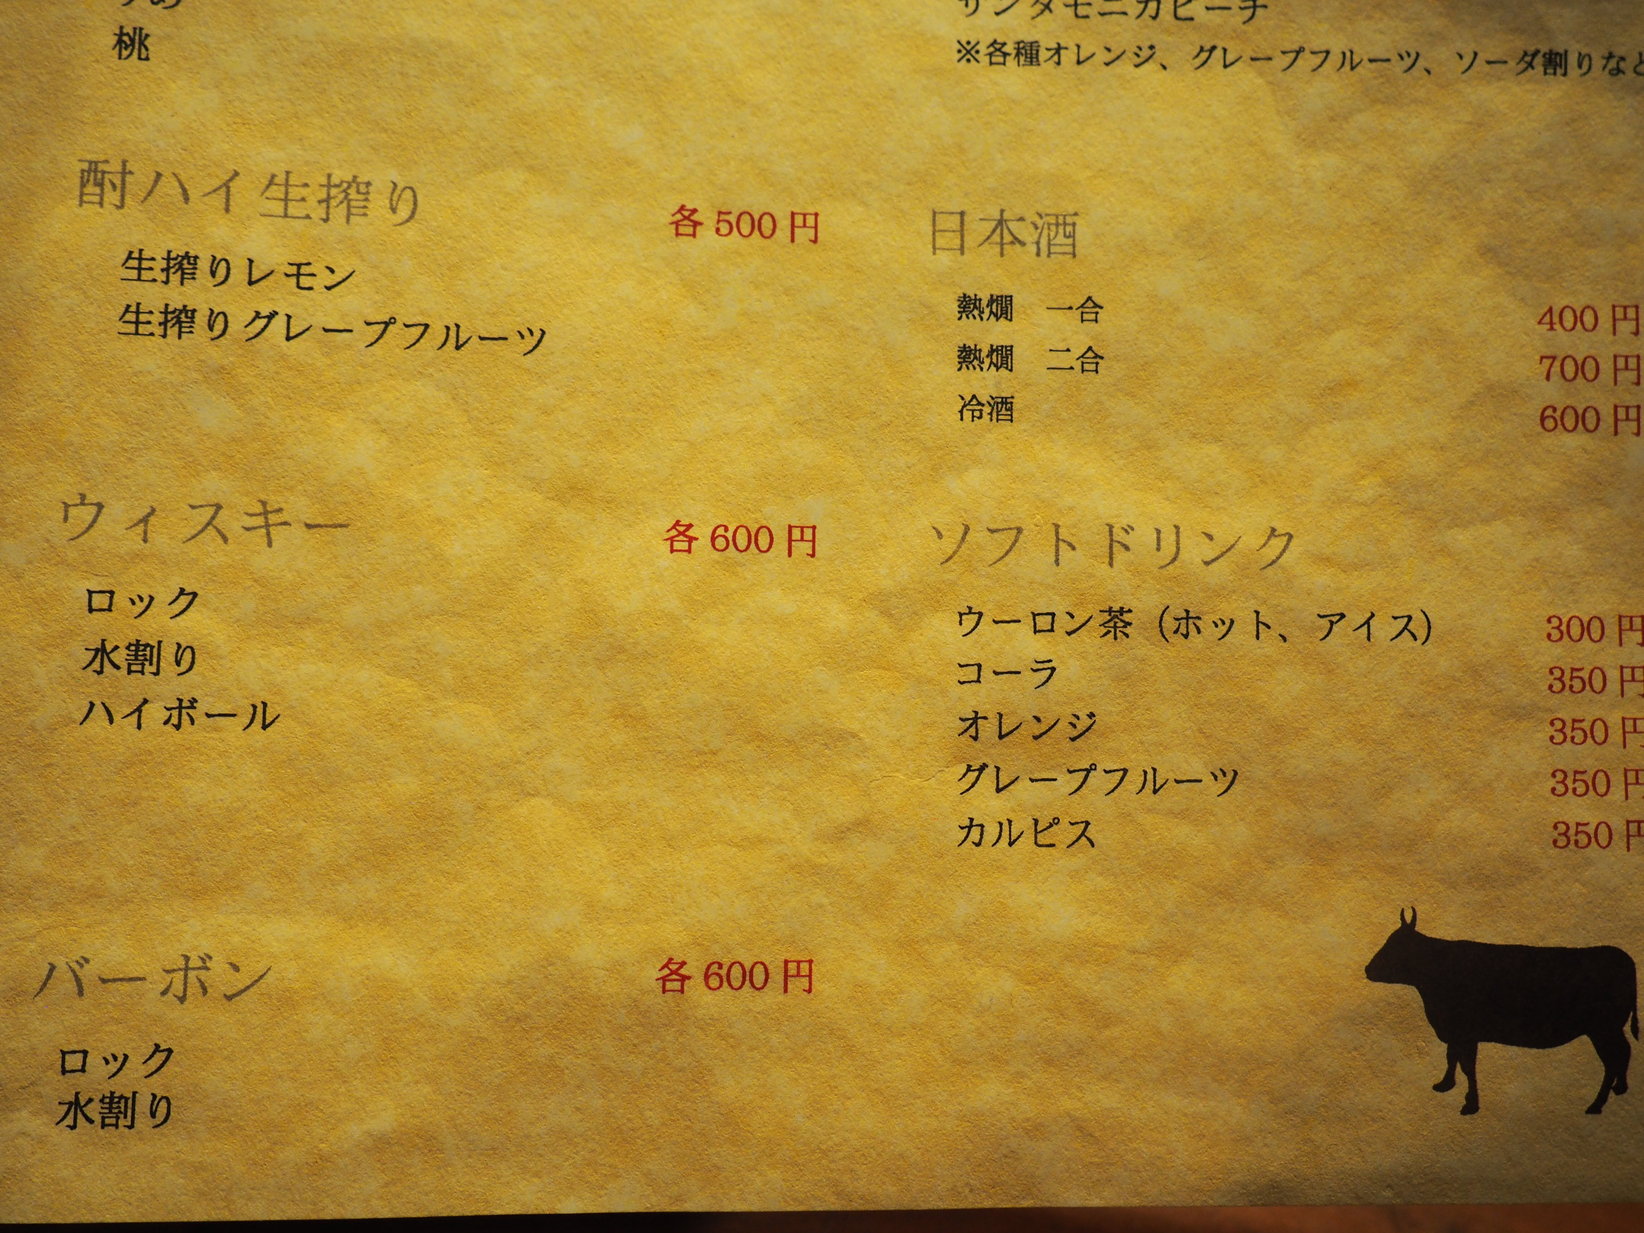 桃
酎ハイ生搾り 各500円
生搾りレモン
生搾りグレープフルーツ
ウィスキー 各600円
ロック
水割り
ハイボール
バーボン 各600円
ロック
水割り
サンタモニカピーチ
※各種オレンジ、グレープフルーツ、ソーダ割りなど
日本酒
熱燗 一合 400円
熱燗 二合 700円
冷酒 600円
ソフトドリンク
ウーロン茶（ホット、アイス） 300円
コーラ 350円
オレンジ 350円
グレープフルーツ 350円
カルピス 350円